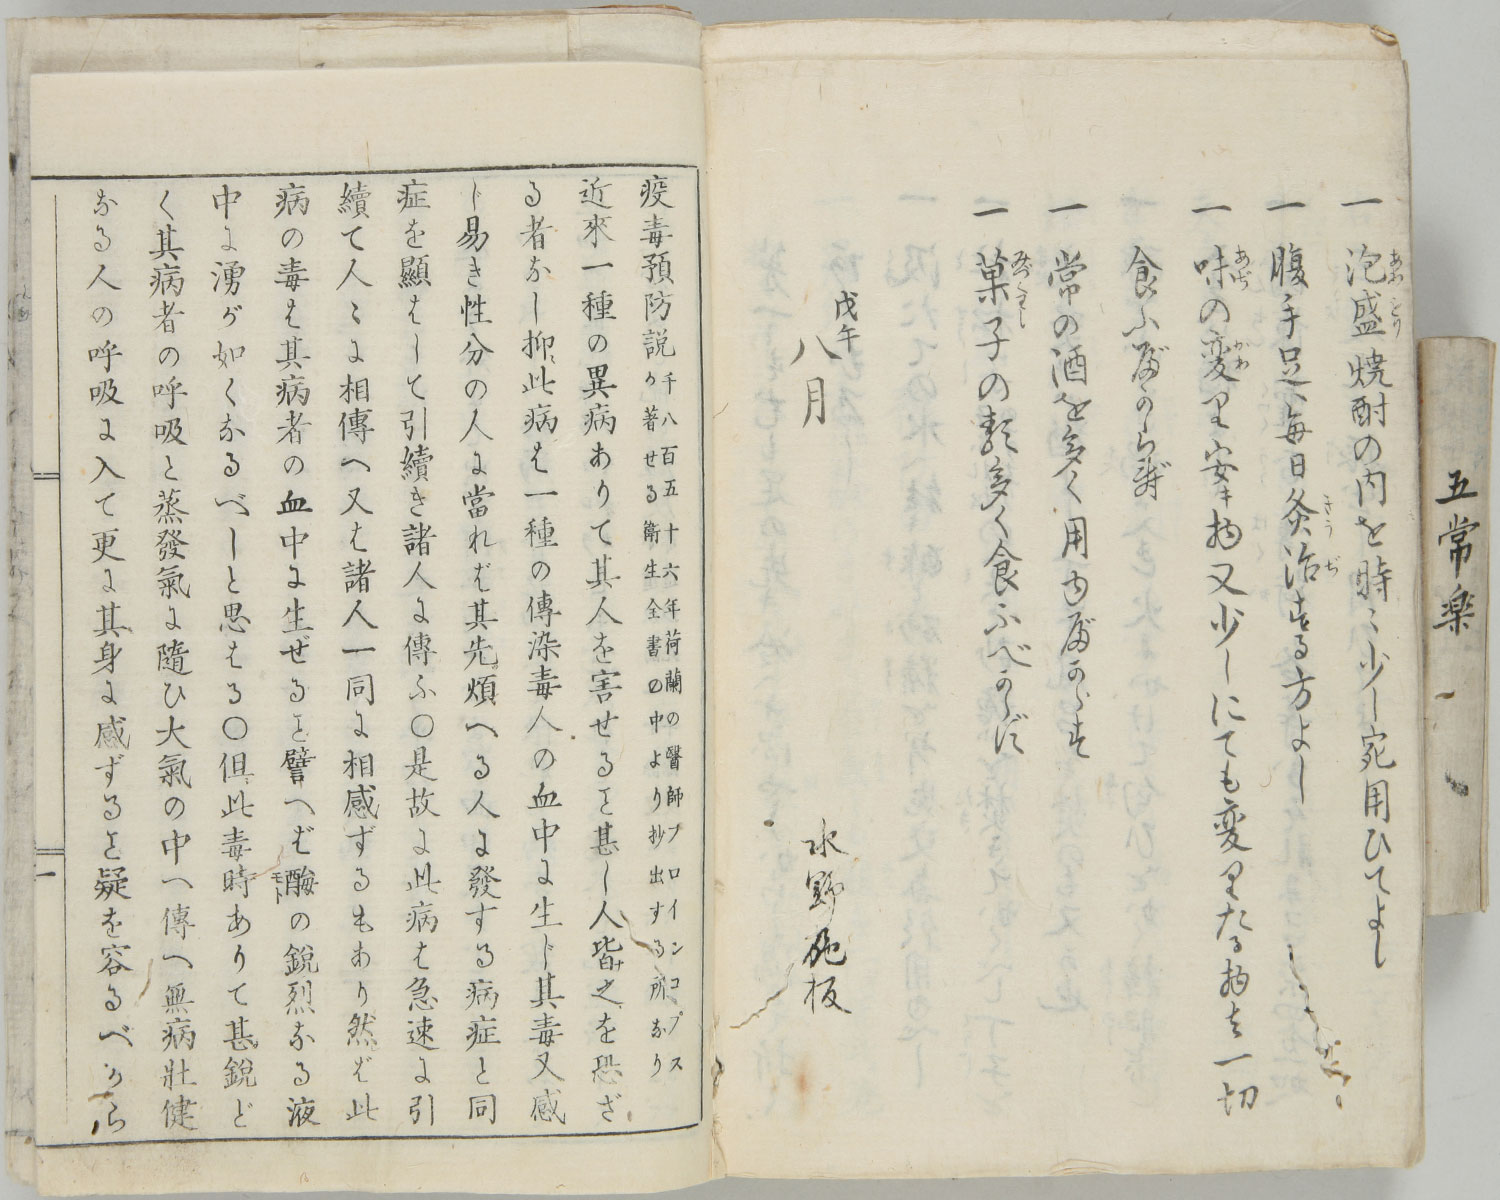 一 泡盛焼酎の内を時々少し宛用ひてよし
一 腹手足へ毎日灸治する方よし
一 味の変り安き物又少しにても変りたる物を一切
食ふべからず
一 常の酒を多く用ゆべからず
一 菓子の類多く食ふべからず
戊午
八月
水野施板
五常楽
疫毒預防説 千八百五十六年荷蘭の醫師ブロインコプス
か著せる衛生全書の中より抄出する所なり
近來一種の異病ありて其人を害せると甚し人皆之を恐ざ
る者なし抑此病は一種の傳染毒人の血中に生じ其毒又感
じ易き性分の人に當れば其先煩へる人に發する病症と同
症を顯はして引續き諸人に傳ふ〇是故に此病は急速に引
續て人々に相傳へ又は諸人一同に相感ずるもあり然ば此
病の毒は其病者の血中に生ぜると譬へば酶の鋭烈なる液
中に湧が如くなるべしと思はる〇但此毒時ありて甚鋭ど
く其病者の呼吸と蒸發氣に隨ひ大氣の中へ傳へ無病壯健
なる人の呼吸に入て更に其身に感ずると疑を容るべから
一